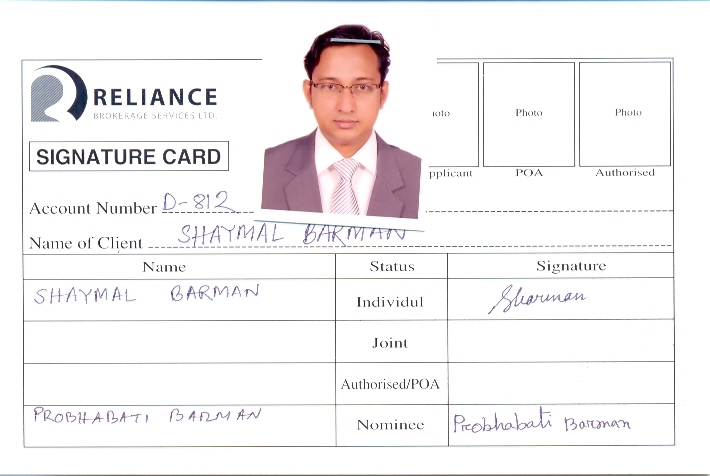 RELIANCE
BROKERAGE SERVICES LTD.
SIGNATURE CARD
Photo Photo
POA Authorised
Account Number D-812
Name of Client SHAYMAL BARMAN
Name Status Signature
SHAYMAL BARMAN Individul Sbarman
Joint
Authorised/POA
PROBHABATI BARMAN Nominee Probhabati Barman